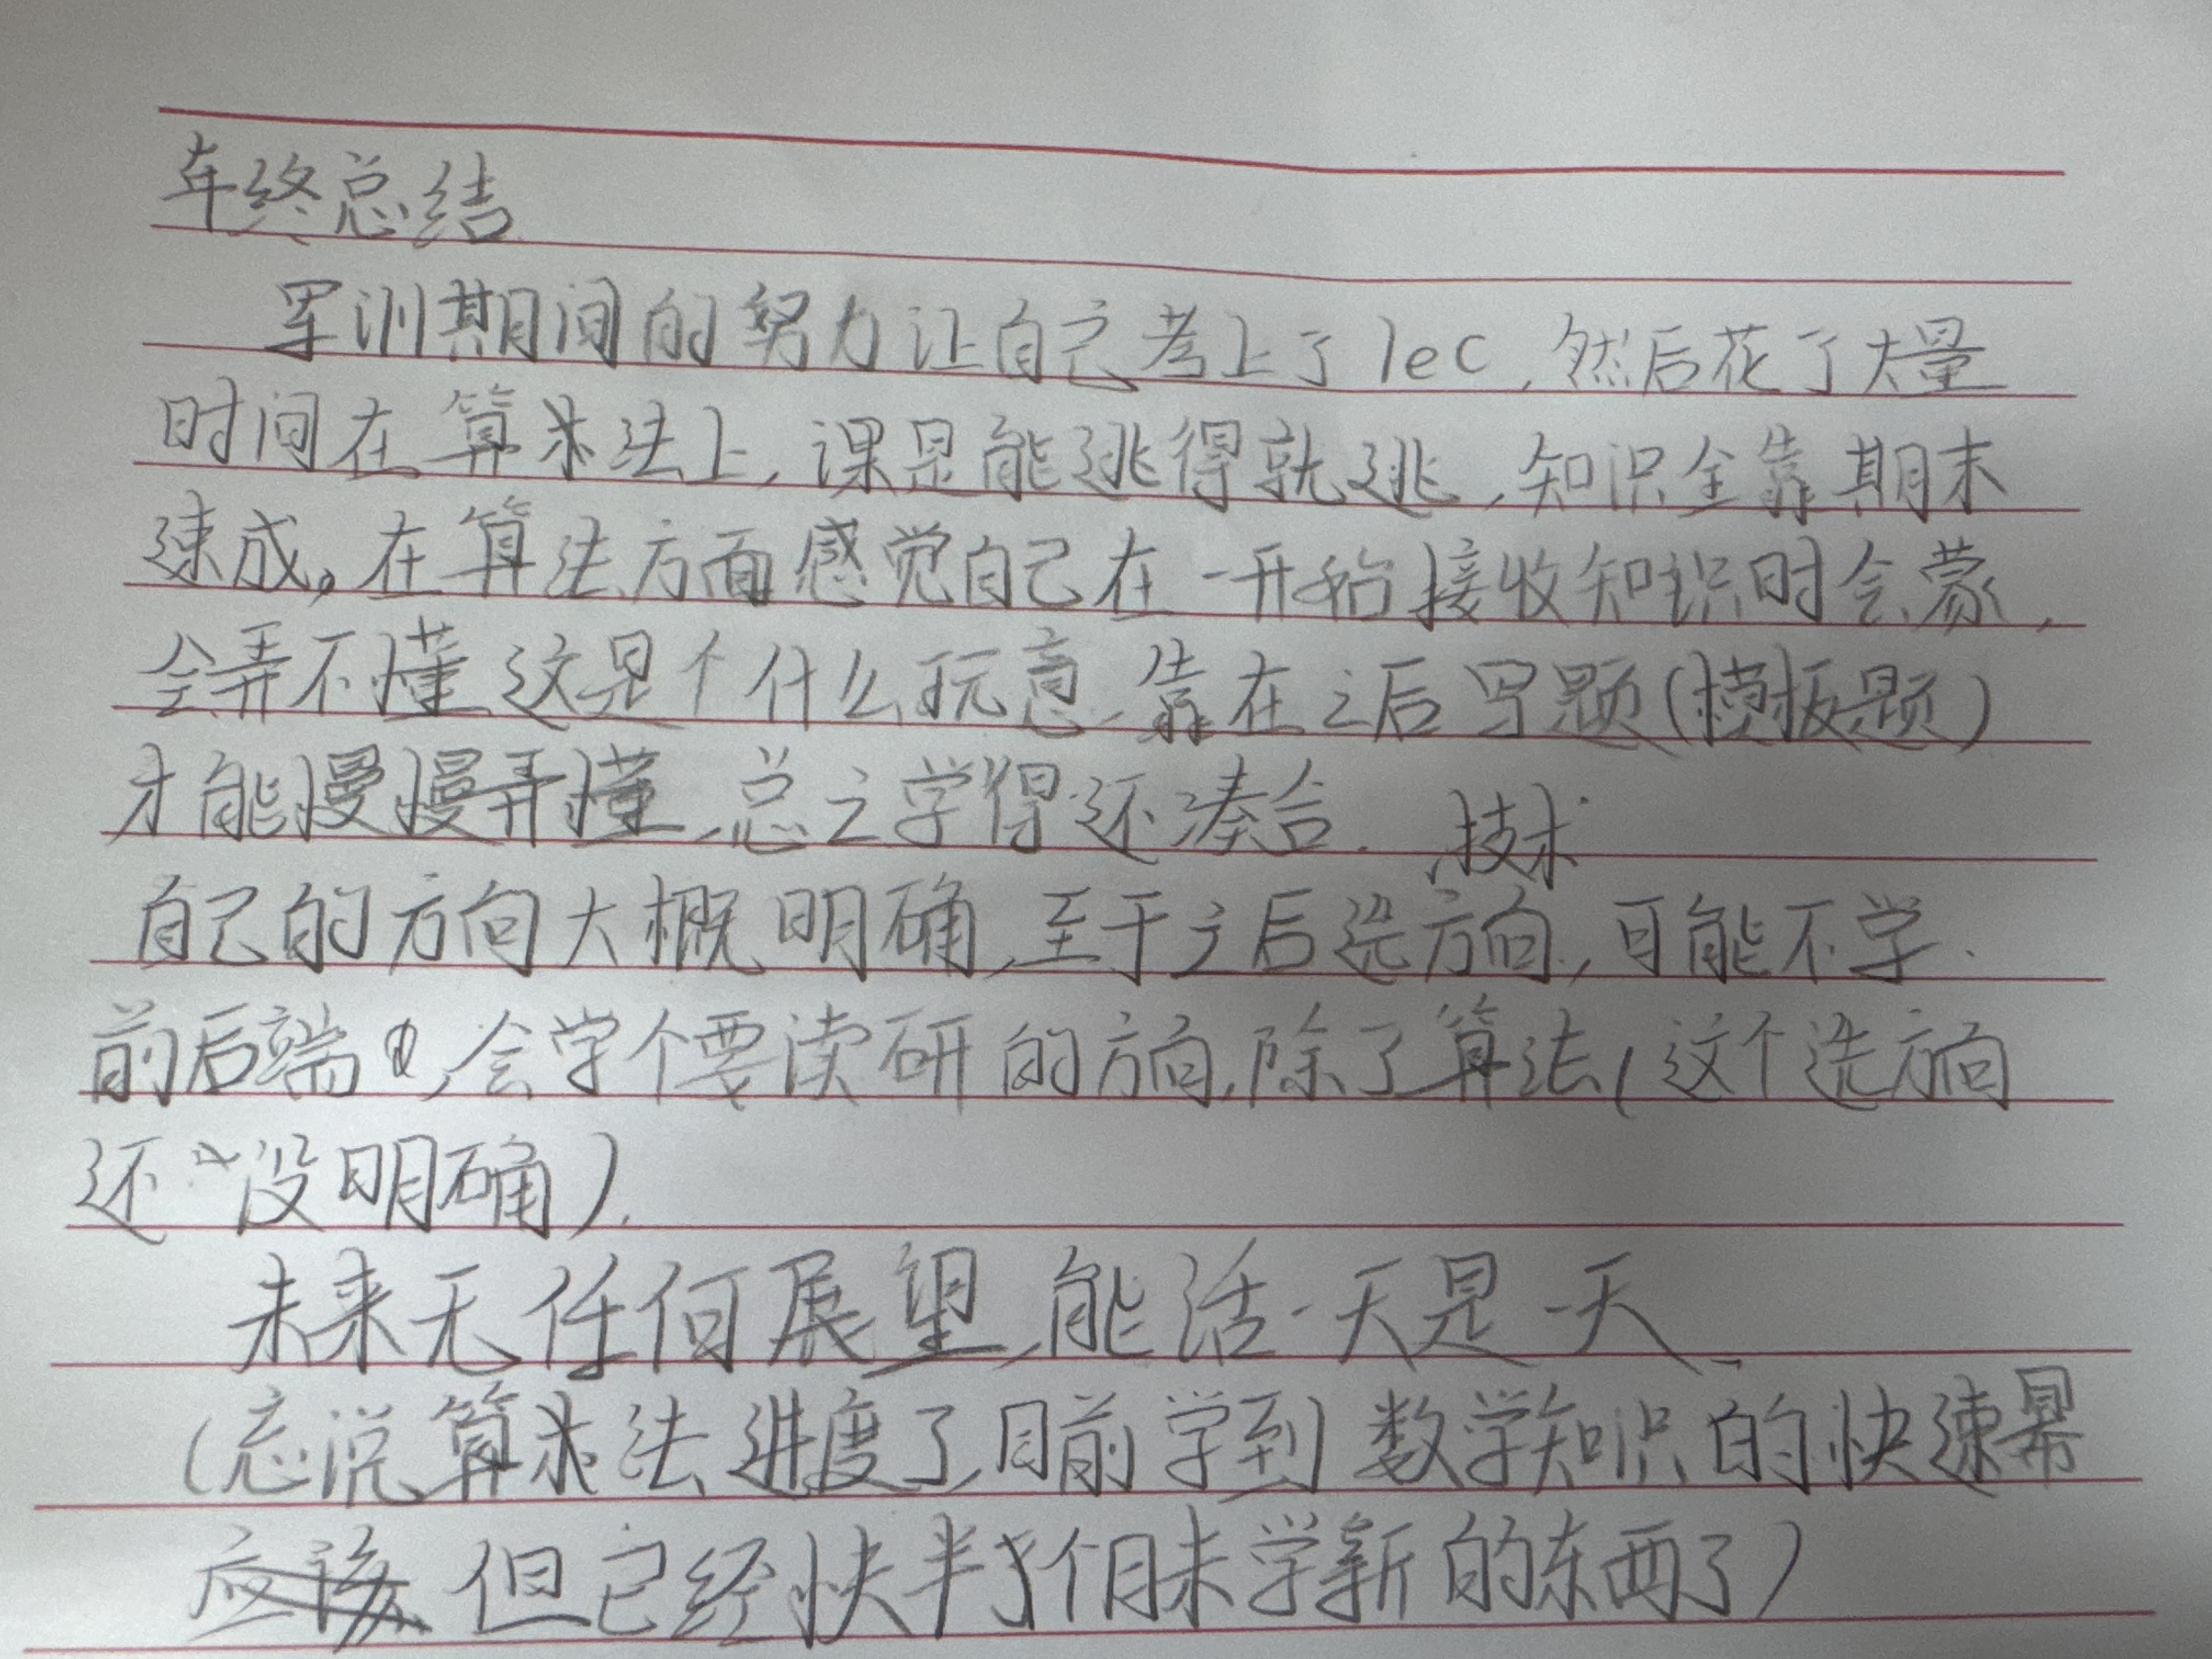 年终总结
军训期间的努力让自己考上了1ec,然后花了大量
时间在算术法上,课是能逃得就逃,知识全靠期末
速成。在算法方面感觉自己在一开始接收知识时会蒙,
会弄不懂这是个什么玩意,靠在之后写题(模板题)
才能慢慢弄懂,总之学得还凑合.
技术
自己的方向大概明确,至于之后选方向,可能不学
前后端,会学个要读研的方向,除了算法(这个选方向
还没明确).
未来无任何展望,能活一天是一天、
(忘说算术法进度了,目前学到数学知识的快速幂
应该 但已经快半个月未学新的东西了)